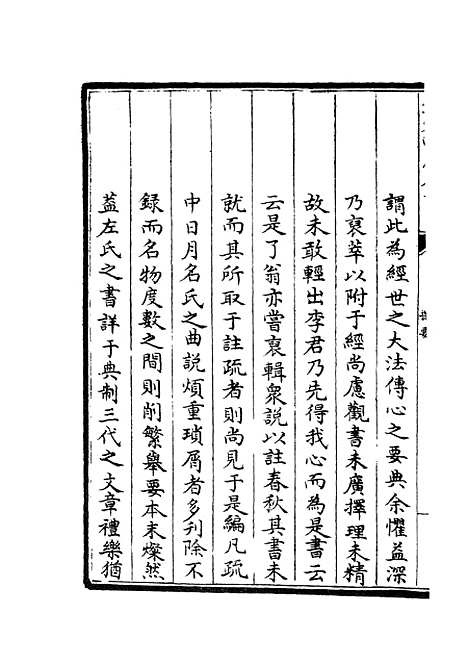 謂此為經世之大法傳心之要典余懼益深
乃裒萃以附于經尚慮觀書未廣擇理未精
故未敢輕出李君乃先得我心而為是書云
云是了翁亦當裒輯衆說以註春秋其書未
就而其所取于註疏者則尚見于是編凡疏
中日月名氏之曲說煩重瑣屑者多刋除不
録而名物度數之間則削繁舉要本末燦然
葢左氏之書詳于典制三代之文章禮樂猶